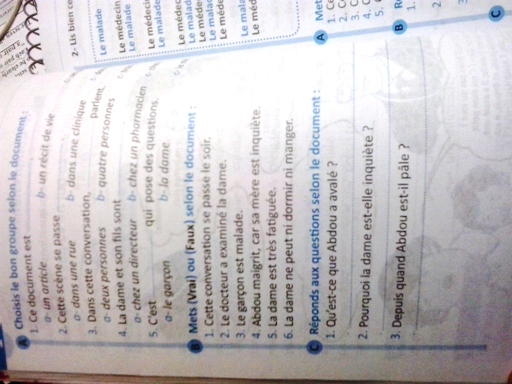 A Choisis le bon groupe selon le document :
1. Ce document est
a- un article b- un récit de vie
2. Cette scène se passe
a- dans une rue b- dans une clinique
3. Dans cette conversation, parlent
a- deux personnes b- quatre personnes
4. La dame et son fils sont
a- chez un directeur b- chez un pharmacien
5. C'est qui pose des questions.
a- le garçon b- la dame
B Mets (Vrai) ou (Faux) selon le document :
1. Cette conversation se passe le soir.
2. Le docteur a examiné la dame.
3. Le garçon est malade.
4. Abdou maigrit, car sa mère est inquiète.
5. La dame est très fatiguée.
6. La dame ne peut ni dormir ni manger.
C Réponds aux questions selon le document :
1. Qu'est-ce que Abdou a avalé ?
2. Pourquoi la dame est-elle inquiète ?
3. Depuis quand Abdou est-il pâle ?
2- Lis bien ce
Le malade
Le médecin
Le malade
Le médecin
Le malade
Le médec
Le malad
Le méde
Le malad
Le méde
Le mala
Le méd
A Met
1. Ce
2. C
3. C
4. C
5.
B R
1.
2
3
C